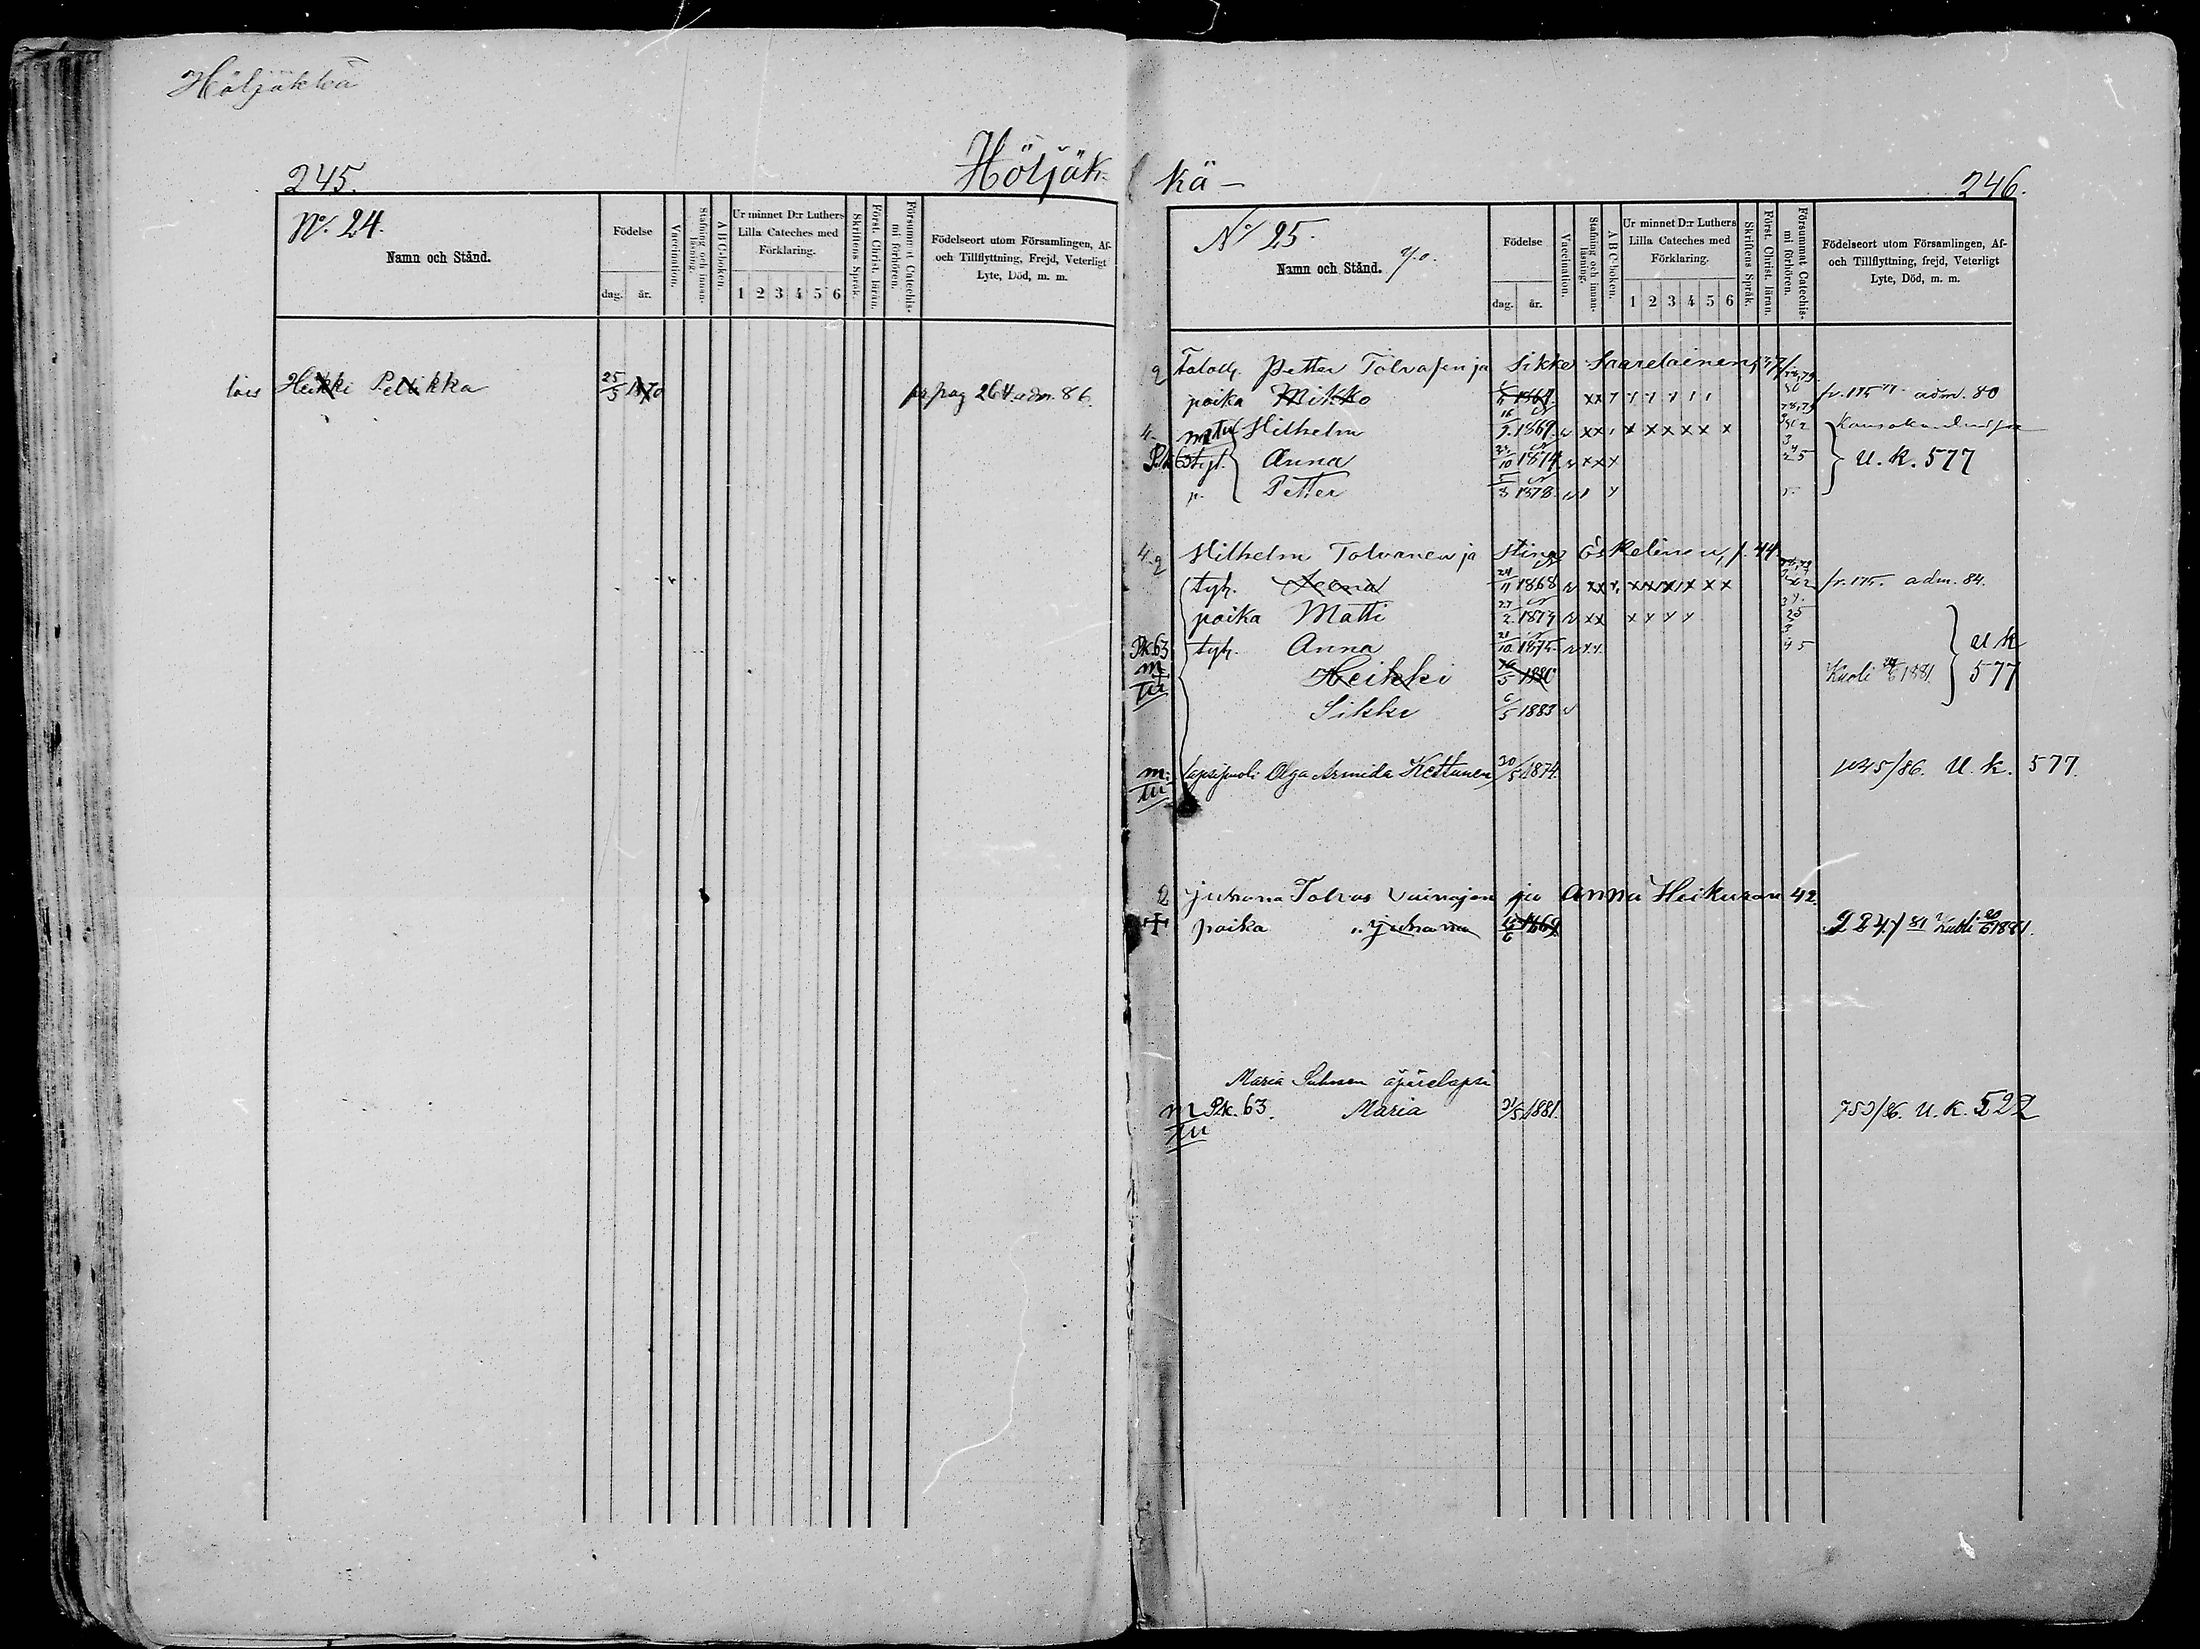 Höljäkkä
Höljäk-
245.
No. 24.
Namn och Stånd.
Födelse
dag. år.
Vaccination.
Stafning och innan-läsning.
A B C-boken.
Ur minnet D:r Luthers Lilla Cateches med Förklaring.
1 2 3 4 5 6
Skriftens Språk.
Först. Christ. läran.
Försummat Catechis-mi förhören.
Födelseort utom Församlingen, Af-
och Tillflyttning, Frejd, Veterligt
Lyte, Död, m. m.
Heikki Petikka 25/5 1870 pag 264 adm. 86.
kä –
246.
No 25.
Namn och Stånd.
Födelse
dag. år.
Vaccination.
Stafning och innan-läsning.
A B C-boken.
Ur minnet D:r Luthers Lilla Cateches med Förklaring.
1 2 3 4 5 6
Skriftens Språk.
Först. Christ. läran.
Försummat Catechis-mi förhören.
Födelseort utom Församlingen, Af-
och Tillflyttning, frejd, Veterligt
Lyte, Död, m. m.
Petter Tolvasen ja Sikke Saarelainen, 37
poika Mikko 1864 adm. 80
Wilhelm 1869
Anna 1874 U. k. 577
p. Petter 1878
Wilhelm Tolvanen ja Stina Eskelinen, f. 44
tyt. Leena 24/11 1868 fr. 175. adm. 84.
poika Matti 27/2 1874
Pk 63 tyt. Anna 21/10 1875 U k
Heikki 1880 Kuoli 1881 577
Sikki 6/5 1883
m lapsipuoli Olga Armida Kettunen 30/5 1874. U. k. 577.
Juhana Tolvas vainajan ja Anna Heikuran 42.
poika Juhana 1869 Kuoli 1881.
Maria äpärelapsi
m Pk. 63. Maria 21/5 1881. 753/86. U. k. 522